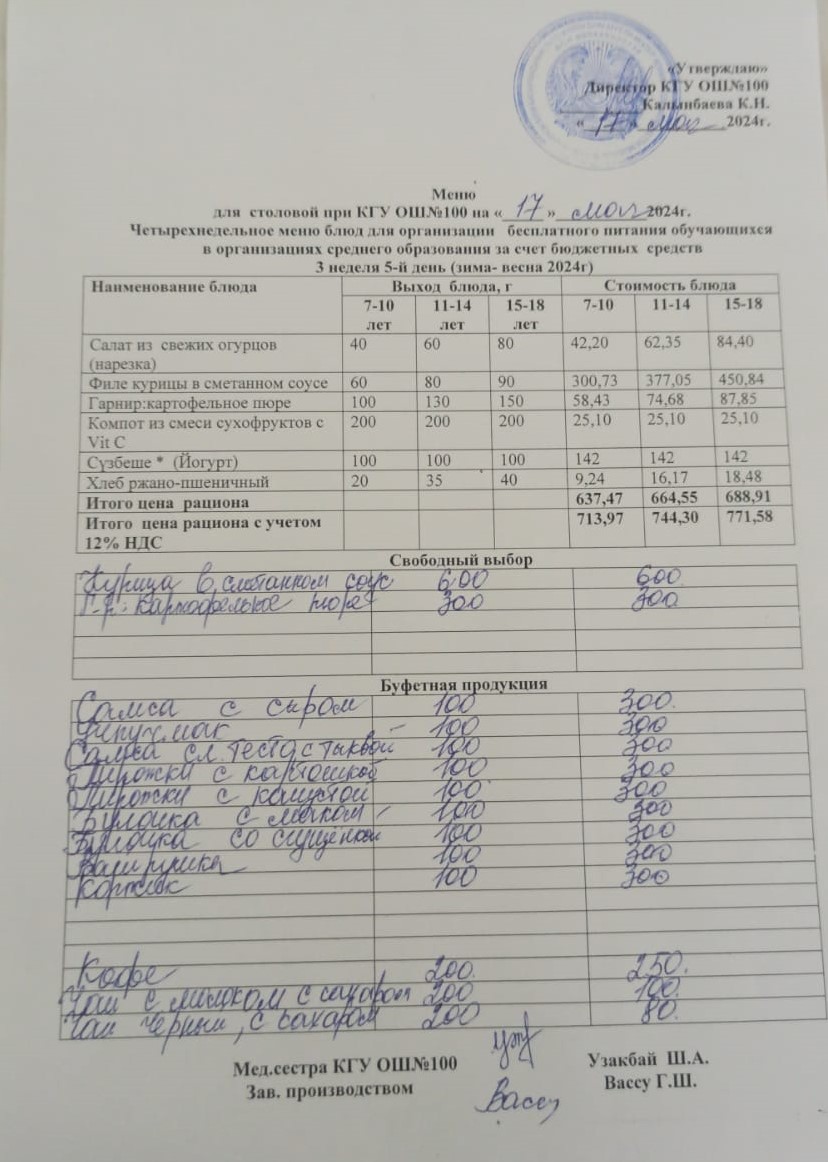 «Утверждаю»
Директор КГУ ОШ№100
Калынбаева К.Н.
« 17 » мая 2024г.
Меню
для столовой при КГУ ОШ№100 на « 17 » мая 2024г.
Четырехнедельное меню блюд для организации бесплатного питания обучающихся
в организациях среднего образования за счет бюджетных средств
3 неделя 5-й день (зима- весна 2024г)
Наименование блюда Выход блюда, г Стоимость блюда
7-10 лет 11-14 лет 15-18 лет 7-10 11-14 15-18
Салат из свежих огурцов (нарезка) 40 60 80 42,20 62,35 84,40
Филе курицы в сметанном соусе 60 80 90 300,73 377,05 450,84
Гарнир:картофельное пюре 100 130 150 58,43 74,68 87,85
Компот из смеси сухофруктов с Vit C 200 200 200 25,10 25,10 25,10
Сузбеше * (Йогурт) 100 100 100 142 142 142
Хлеб ржано-пшеничный 20 35 40 9,24 16,17 18,48
Итого цена рациона 637,47 664,55 688,91
Итого цена рациона с учетом 12% НДС 713,97 744,30 771,58
Свободный выбор
Курица в сметанном соус 600 600
Гр: картофельное пюре 300 300
Буфетная продукция
Самса с сыром 100 300
100 300
Самса сл. теста с тыквой 100 300
Пирожки с картошкой 100 300
Пирожки с капустой 100 300
Булочка с маком 100 300
Булочка со сгущенкой 100 300
Ватрушка 100 300
Коржик 100 300
Кофе 200 250
Чай с молоком с сахаром 200 100
Чай черный, с сахаром 200 80
Мед.сестра КГУ ОШ№100 Узакбай Ш.А.
Зав. производством Вассу Вассу Г.Ш.